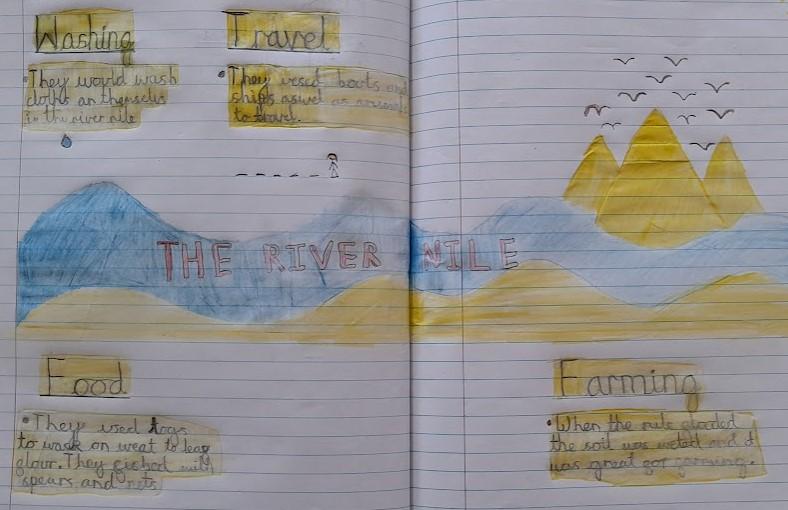 Washing
•They would wash
cloths an themselves
in the river nile
Travel
•They used boats and
ships aswel as
to travel.
THE RIVER NILE
Food
•They used
to walk on weat to
flour. They fished with
spears and nets
Farming
•When the nile flooded
the soil was and it
was great for farming.